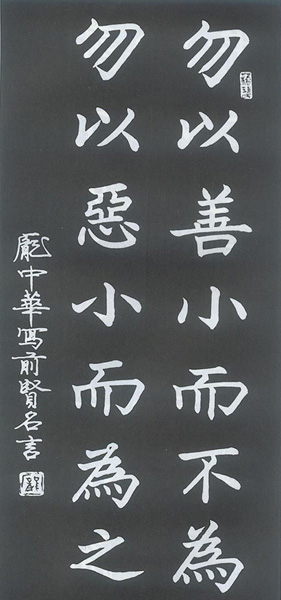 勿以善小而不為
勿以惡小而為之
龐中華寫前賢名言